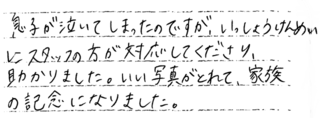 息子が泣いてしまったのですが、いっしょうけんめい
にスタッフの方が対応してくださり、
助かりました。いい写真がとれて、家族
の記念になりました。